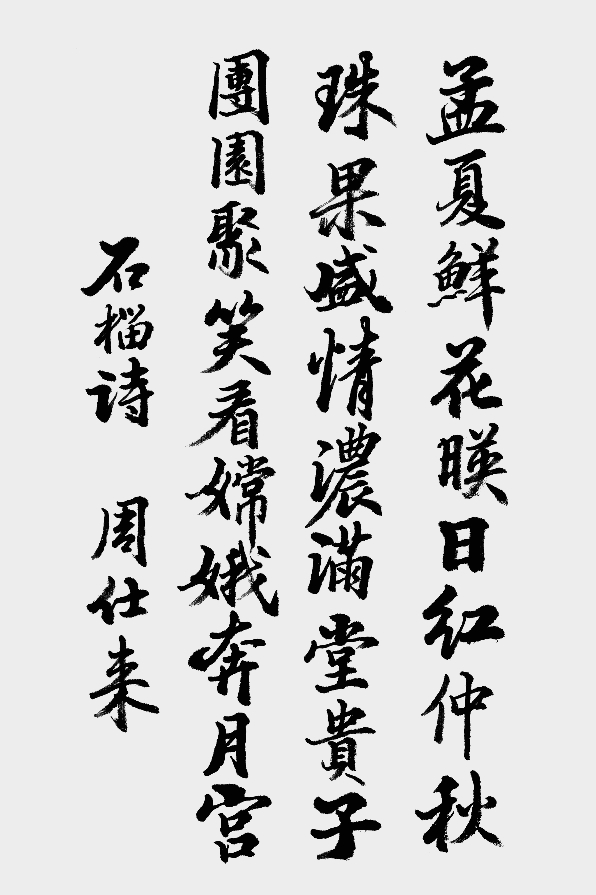 孟夏鮮花暎日红仲秋
珠果盛情濃滿堂貴子
團園聚笑看嫦娥奔月宫
石榴诗 周仕来